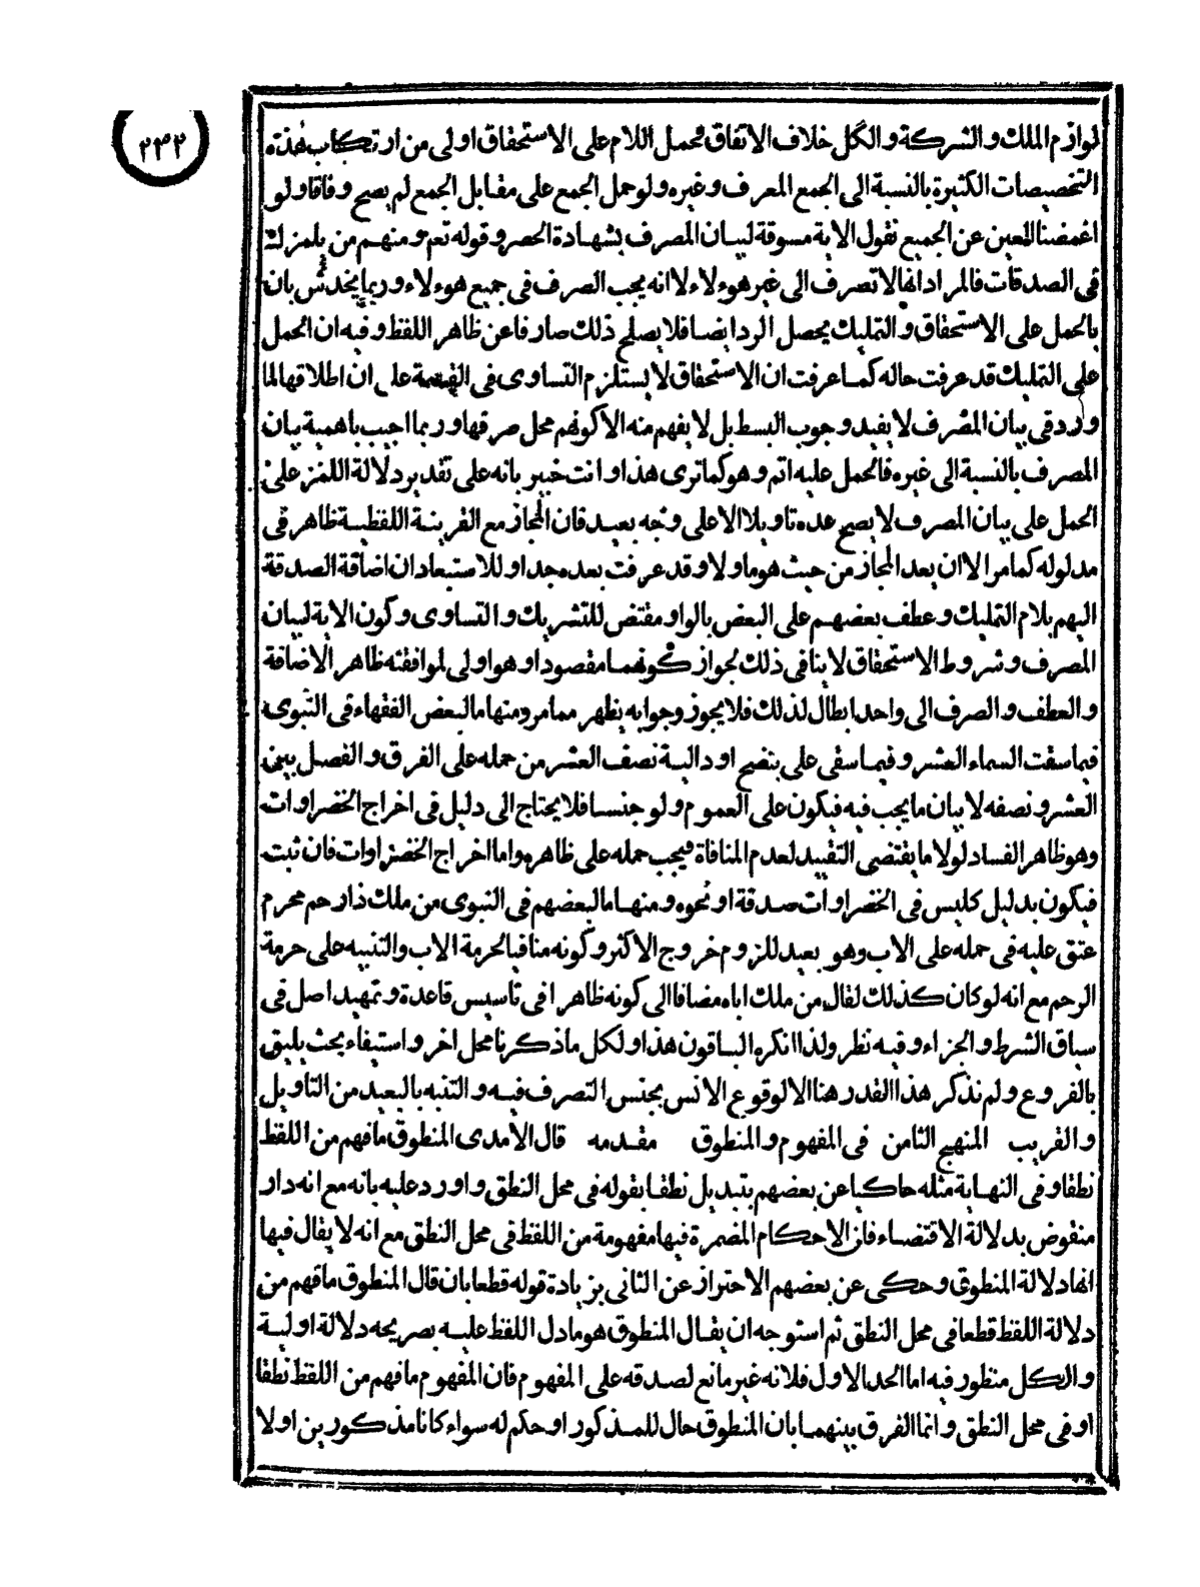 ٢٣٢
لوازم الملك والشركة والكل خلاف الاتفاق فحمل اللام على الاستحقاق اولى من ارتكاب هذه
التخصيصات الكثيرة بالنسبة الى الجمع المعرف وغيره ولو حمل الجمع على مقابل الجمع لم يصح وفاقا ولو
اغمضنا العين عن الجميع نقول الاية مسوقة لبيان المصرف بشهادة الحصر وقوله تعم ومنهم من يلمزك
فى الصدقات فالمراد انها لا تصرف الى غير هوءلاء لا انه يجب الصرف فى جميع هوءلاء وربما يخدش بان
بالحمل على الاستحقاق والتمليك يحصل الرد ايضا فلا يصلح ذلك صارفا عن ظاهر اللفظ وفيه ان الحمل
على التمليك قد عرفت حاله كما عرفت ان الاستحقاق لا يستلزم التساوى فى القسمة على ان اطلاقها لما
ورد فى بيان المصرف لا يفيد وجوب البسط بل لا يفهم منه الا كونهم محل صرفها وربما اجيب باهمية بيان
المصرف بالنسبة الى غيره فالحمل عليه اتم وهو كما ترى هذا وانت خبير بانه على تقدير دلالة اللمز على
الحمل على بيان المصرف لا يصح عده تاويلا الا على وجه بعيد فان المجاز مع القرينة اللفظية ظاهر فى
مدلوله كما مر الا ان يعد المجاز من حيث هو ماولا وقد عرفت بعده جدا وللاستبعاد ان اضافة الصدقة
اليهم بلام التمليك وعطف بعضهم على البعض بالواو مقتض للتشريك والتساوى وكون الاية لبيان
المصرف وشروط الاستحقاق لا ينافى ذلك لجواز كونهما مقصودا وهو اولى لموافقته ظاهر الاضافة
والعطف والصرف الى واحد ابطال لذلك فلا يجوز وجوابه يظهر مما مر ومنها ما لبعض الفقهاء فى النبوى
فيما سقت السماء العشر وفيما سقى على بنضح او دالية نصف العشر من حمله على الفرق والفصل بين
العشر ونصفه لا بيان ما يجب فيه فيكون على العموم ولو جنسا فلا يحتاج الى دليل فى اخراج الخضراوات
وهو ظاهر الفساد لولا ما يقتضى التقييد لعدم المنافاة فيجب حمله على ظاهره واما اخراج الخضراوات فان ثبت
فيكون بدليل كليس فى الخضراوات صدقة او نحوه ومنها ما لبعضهم فى النبوى من ملك ذا رحم محرم
عتق عليه فى حمله على الاب وهو بعيد للزوم خروج الاكثر وكونه منافيا لحرمة الاب والتنبيه على حرمة
الرحم مع انه لو كان كذلك لقال من ملك اباه مضافا الى كونه ظاهرا فى تاسيس قاعدة وتمهيد اصل فى
سياق الشرط والجزاء وفيه نظر ولذا انكره الباقون هذا ولكل ما ذكرنا محل اخر واستيفاء بحث يليق
بالفروع ولم نذكر هذا القدر هنا الا لوقوع الانس بجنس التصرف فيه والتنبه بالبعيد من التاويل
والقريب المنهج الثامن فى المفهوم والمنطوق مقدمه قال الآمدى المنطوق ما فهم من اللفظ
نطقا وفى النهاية مثله حاكيا عن بعضهم بتبديل نطقا بقوله فى محل النطق واورد عليه بانه مع انه دار
منقوض بدلالة الاقتضاء فان الاحكام المضمرة فيها مفهومة من اللفظ فى محل النطق مع انه لا يقال فيها
انها دلالة المنطوق وحكى عن بعضهم الاحتراز عن الثانى بزيادة قوله قطعا بان قال المنطوق ما فهم من
دلالة اللفظ قطعا فى محل النطق ثم استوجه ان يقال المنطوق هو ما دل اللفظ عليه بصريحه دلالة اولية
والكل منظور فيه اما الحد الاول فلانه غير مانع لصدقه على المفهوم فان المفهوم ما فهم من اللفظ نطقا
او فى محل النطق وانما الفرق بينهما بان المنطوق حال للمذكور او حكم له سواء كانا مذكورين اولا